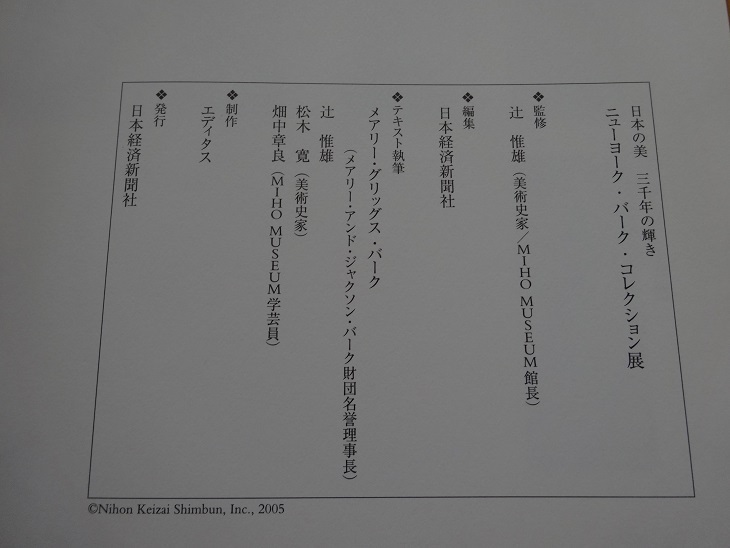 日本の美　三千年の輝き
ニューヨーク・バーク・コレクション展
❖監修
辻　惟雄（美術史家／MIHO MUSEUM館長）
❖編集
日本経済新聞社
❖テキスト執筆
メアリー・グリッグス・バーク
（メアリー・アンド・ジャクソン・バーク財団名誉理事長）
辻　惟雄
松木　寛（美術史家）
畑中章良（MIHO MUSEUM学芸員）
❖制作
エディタス
❖発行
日本経済新聞社
©Nihon Keizai Shimbun, Inc., 2005